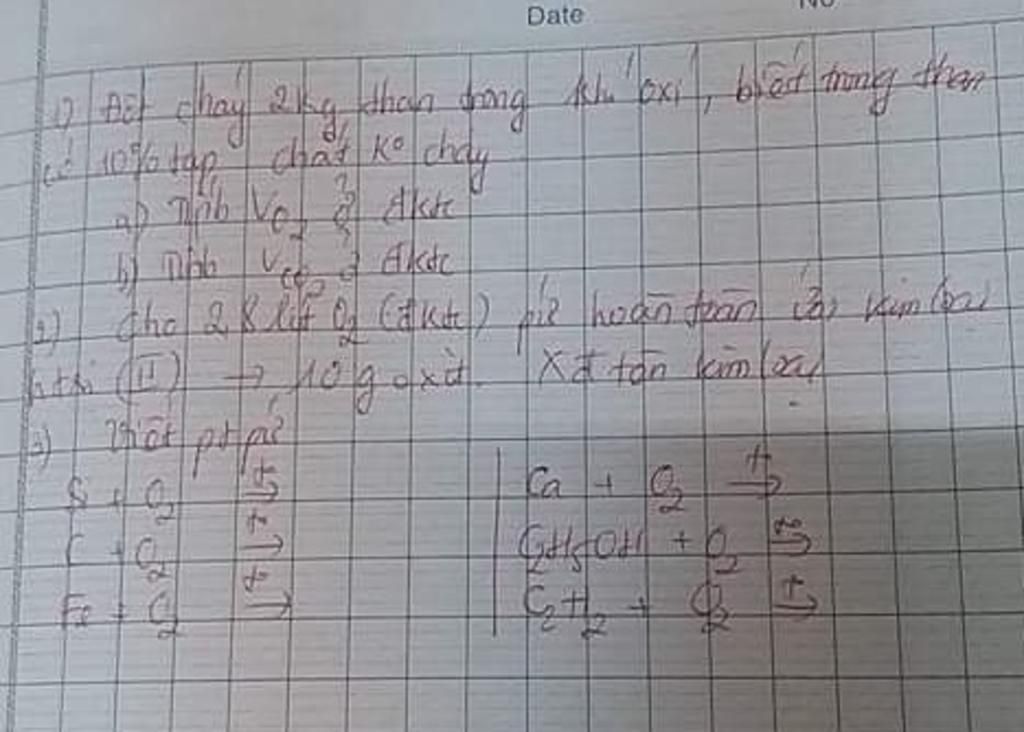 Date No
1) Đốt cháy 2kg than trong khí oxi, biết trong than
có 10% tạp chất ko cháy
a) Tính VO2 ở đktc
b) Tính VCO2 ở đktc
2) Cho 2,8 lít O2 (đktc) pứ hoàn toàn với kim loại
h.trị (II) → 10g oxit. Xđ tên kim loại
3) Viết pt pứ
S + O2 t°→ | Ca + O2 t°→
C + O2 t°→ | C2H5OH + O2 t°→
Fe + O2 t°→ | C2H2 + O2 t°→